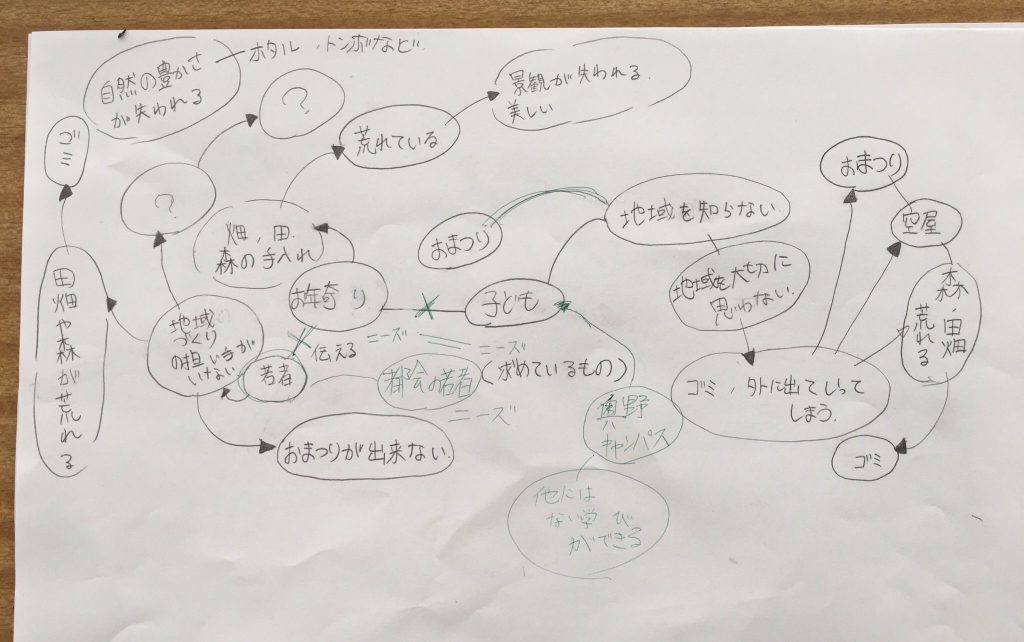 自然の豊かさ
が失われる
ホタル、トンボなど
?
景観が失われる
美しい
荒れている
ゴミ
?
畑、田
森の手入れ
おまつり
地域を知らない
おまつり
空屋
田畑や森が荒れる
お年寄り
子ども
地域を大切に
思わない
森・田畑
荒れる
地域
づくり
の担い手が
いない
伝える
ニーズ
ニーズ
若者
都会の若者
(求めているもの)
ニーズ
ゴミ、外に出てしって
しまう
奥野
キャンパス
おまつりが出来ない
ゴミ
他には
ない学び
ができる